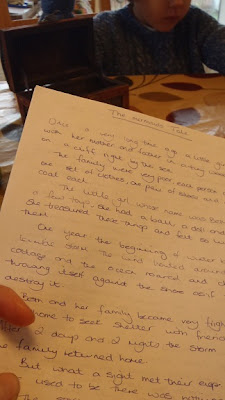 The Mermaid's Tale
Once a very very long time ago a little girl
with her mother and father in a tiny
on a cliff right by the sea.
The family were very poor, each person
one set of clothes, one pair of shoes and
coat each.
The little girl whose name was Beth
a few toys. She had a ball, a doll and
She treasured these things and felt so lu
them.
One year the beginning of winter
terrible storm. The wind wailed around
cottage and the ocean roared and
throwing itself against the shore as if
destroy it.
Beth and her family became very frigh
home to seek shelter with friend
After 2 days and 2 nights the storm
the family returned home.
But what a sight met their eyes.
used to be there was nothing